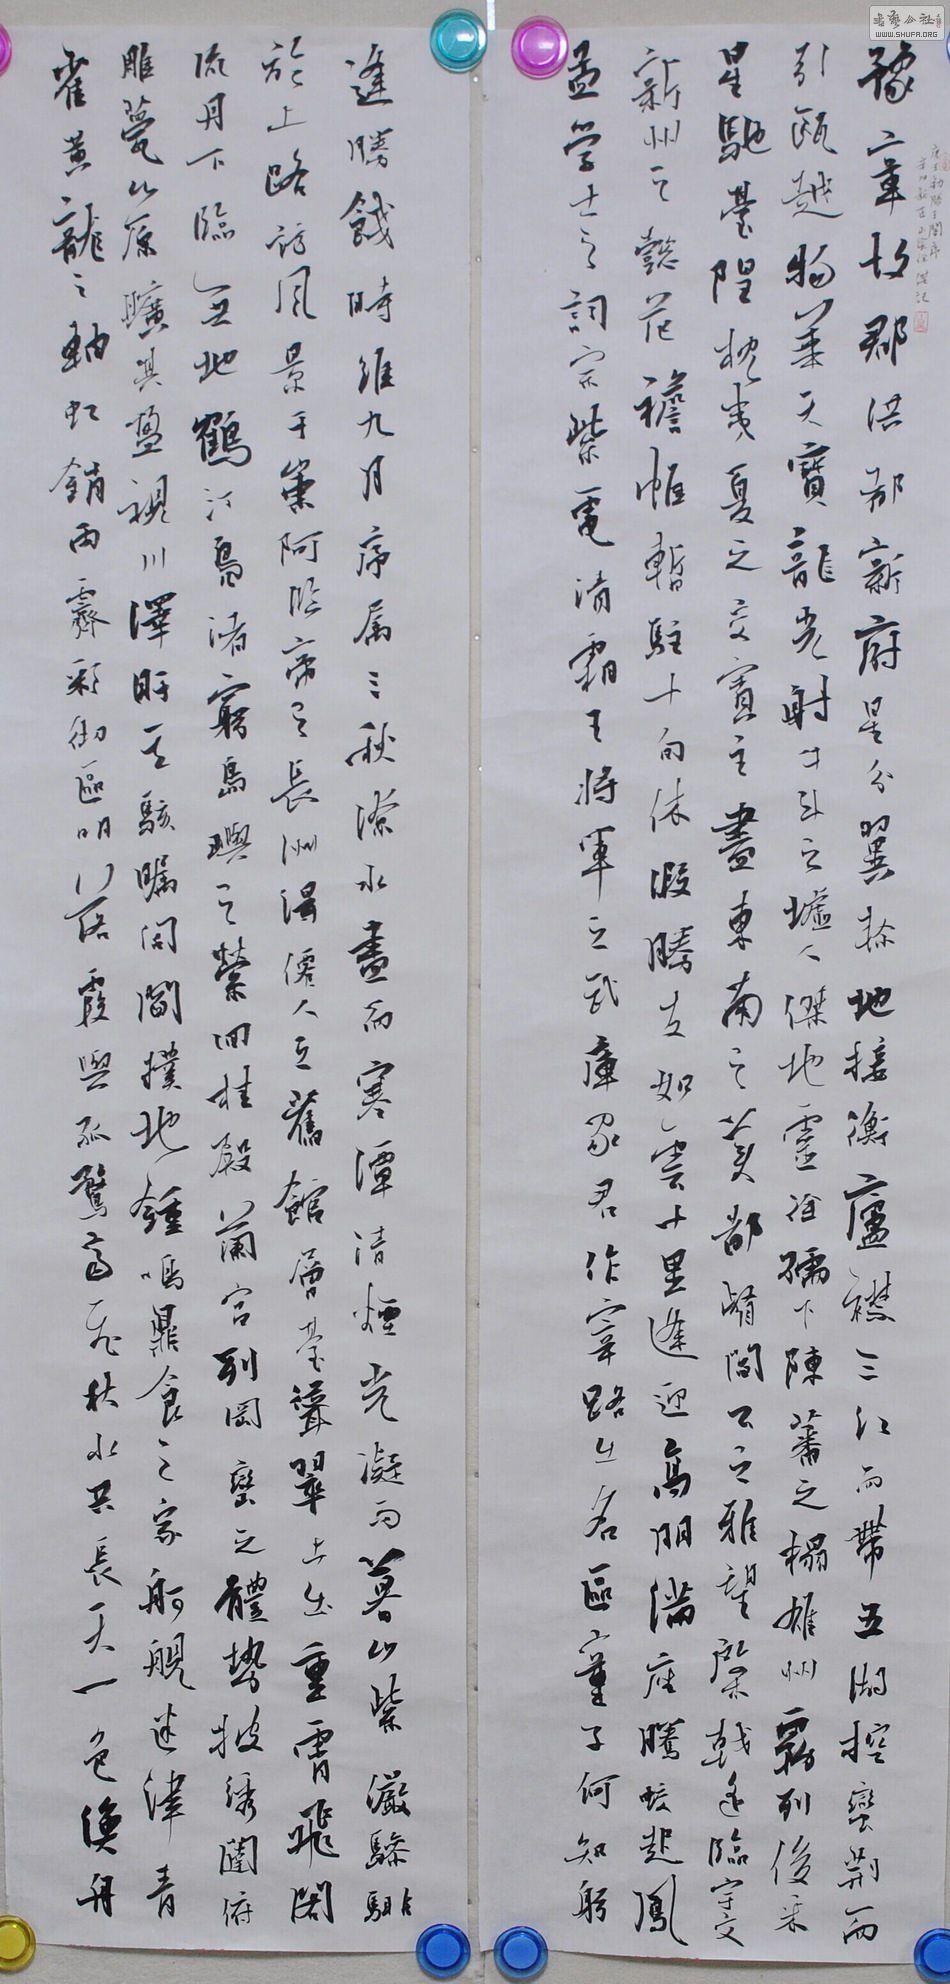 豫章故郡洪都新府星分翼軫地接衡廬襟三江而帶五湖控蠻荊而
引甌越物華天寶龍光射牛斗之墟人傑地靈徐孺下陳蕃之榻雄州霧列俊采
星馳臺隍枕夷夏之交賓主盡東南之美都督閻公之雅望棨戟遙臨宇文
新州之懿范襜帷暫駐十旬休假勝友如雲千里逢迎高朋滿座騰蛟起鳳
孟學士之詞宗紫電清霜王將軍之武庫家君作宰路出名區童子何知躬
逢勝餞時維九月序屬三秋潦水盡而寒潭清煙光凝而暮山紫儼驂騑
於上路訪風景于崇阿臨帝子之長洲得僊人之舊館層臺聳翠上出重霄飛閣
流丹下臨無地鶴汀鳧渚窮島嶼之縈回桂殿蘭宮列岡巒之體勢披綉闥俯
雕甍山原曠其盈視川澤盱其駭矚閭閻撲地鍾鳴鼎食之家舸艦迷津青
雀黃龍之軸虹銷雨霽彩徹區明落霞與孤鶩齊飛秋水共長天一色漁舟
書藝公社
WWW.SHUFA.ORG